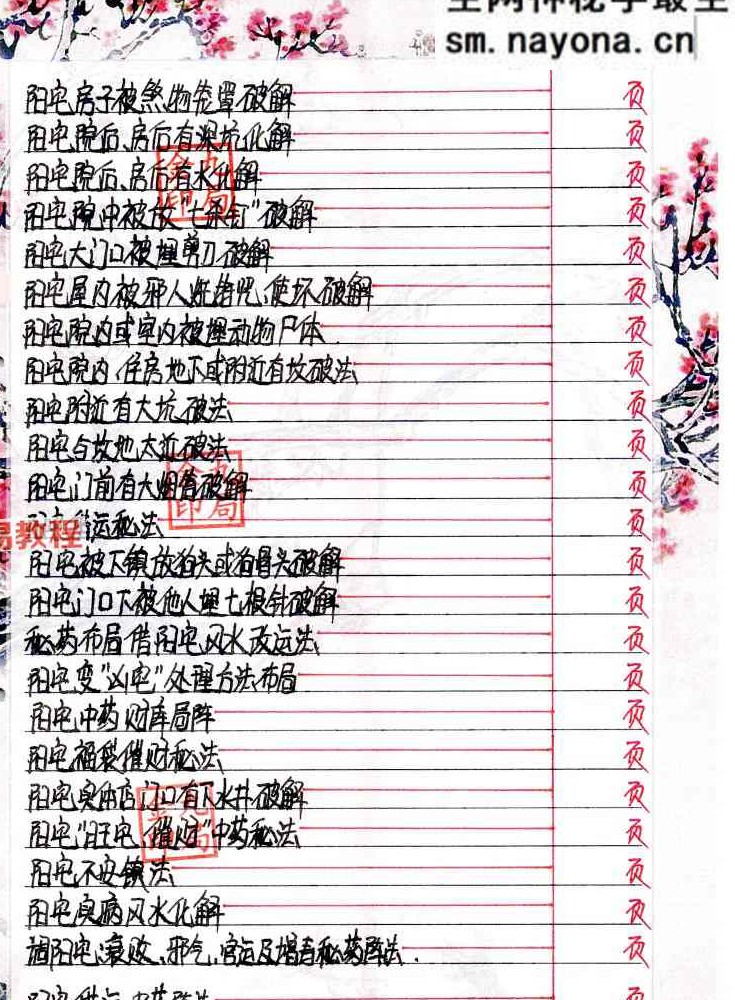 sm.nayona.cn
阳宅房子被煞物笼罩破解 页
阳宅院后、房后有深坑化解 页
阳宅院后、房后有水化解 页
阳宅院中被放"七杀钉"破解 页
阳宅大门口被埋剪刀破解 页
阳宅屋内被邪人 使坏破解 页
阳宅院内或室内被埋动物尸体. 页
阳宅院内、住房地下或附近有坟破法 页
阳宅附近有大坑破法 页
阳宅与坟地太近破法 页
阳宅门前有大烟筒破解 页
运秘法 页
易教程
阳宅被下镇放狗头或狗骨头破解 页
阳宅门口下被他人埋七根针破解 页
秘药布局借阳宅风水改运法 页
阳宅变"凶宅"处理方法布局 页
阳宅中药财库局阵 页
阳宅福袋催财秘法 页
阳宅实体店门口有下水井破解 页
阳宅"旺宅、催财"中药秘法 页
阳宅不安镇法 页
阳宅实病风水化解 页
调阳宅、衰败、邪气、官运及增寿秘药阵法. 页